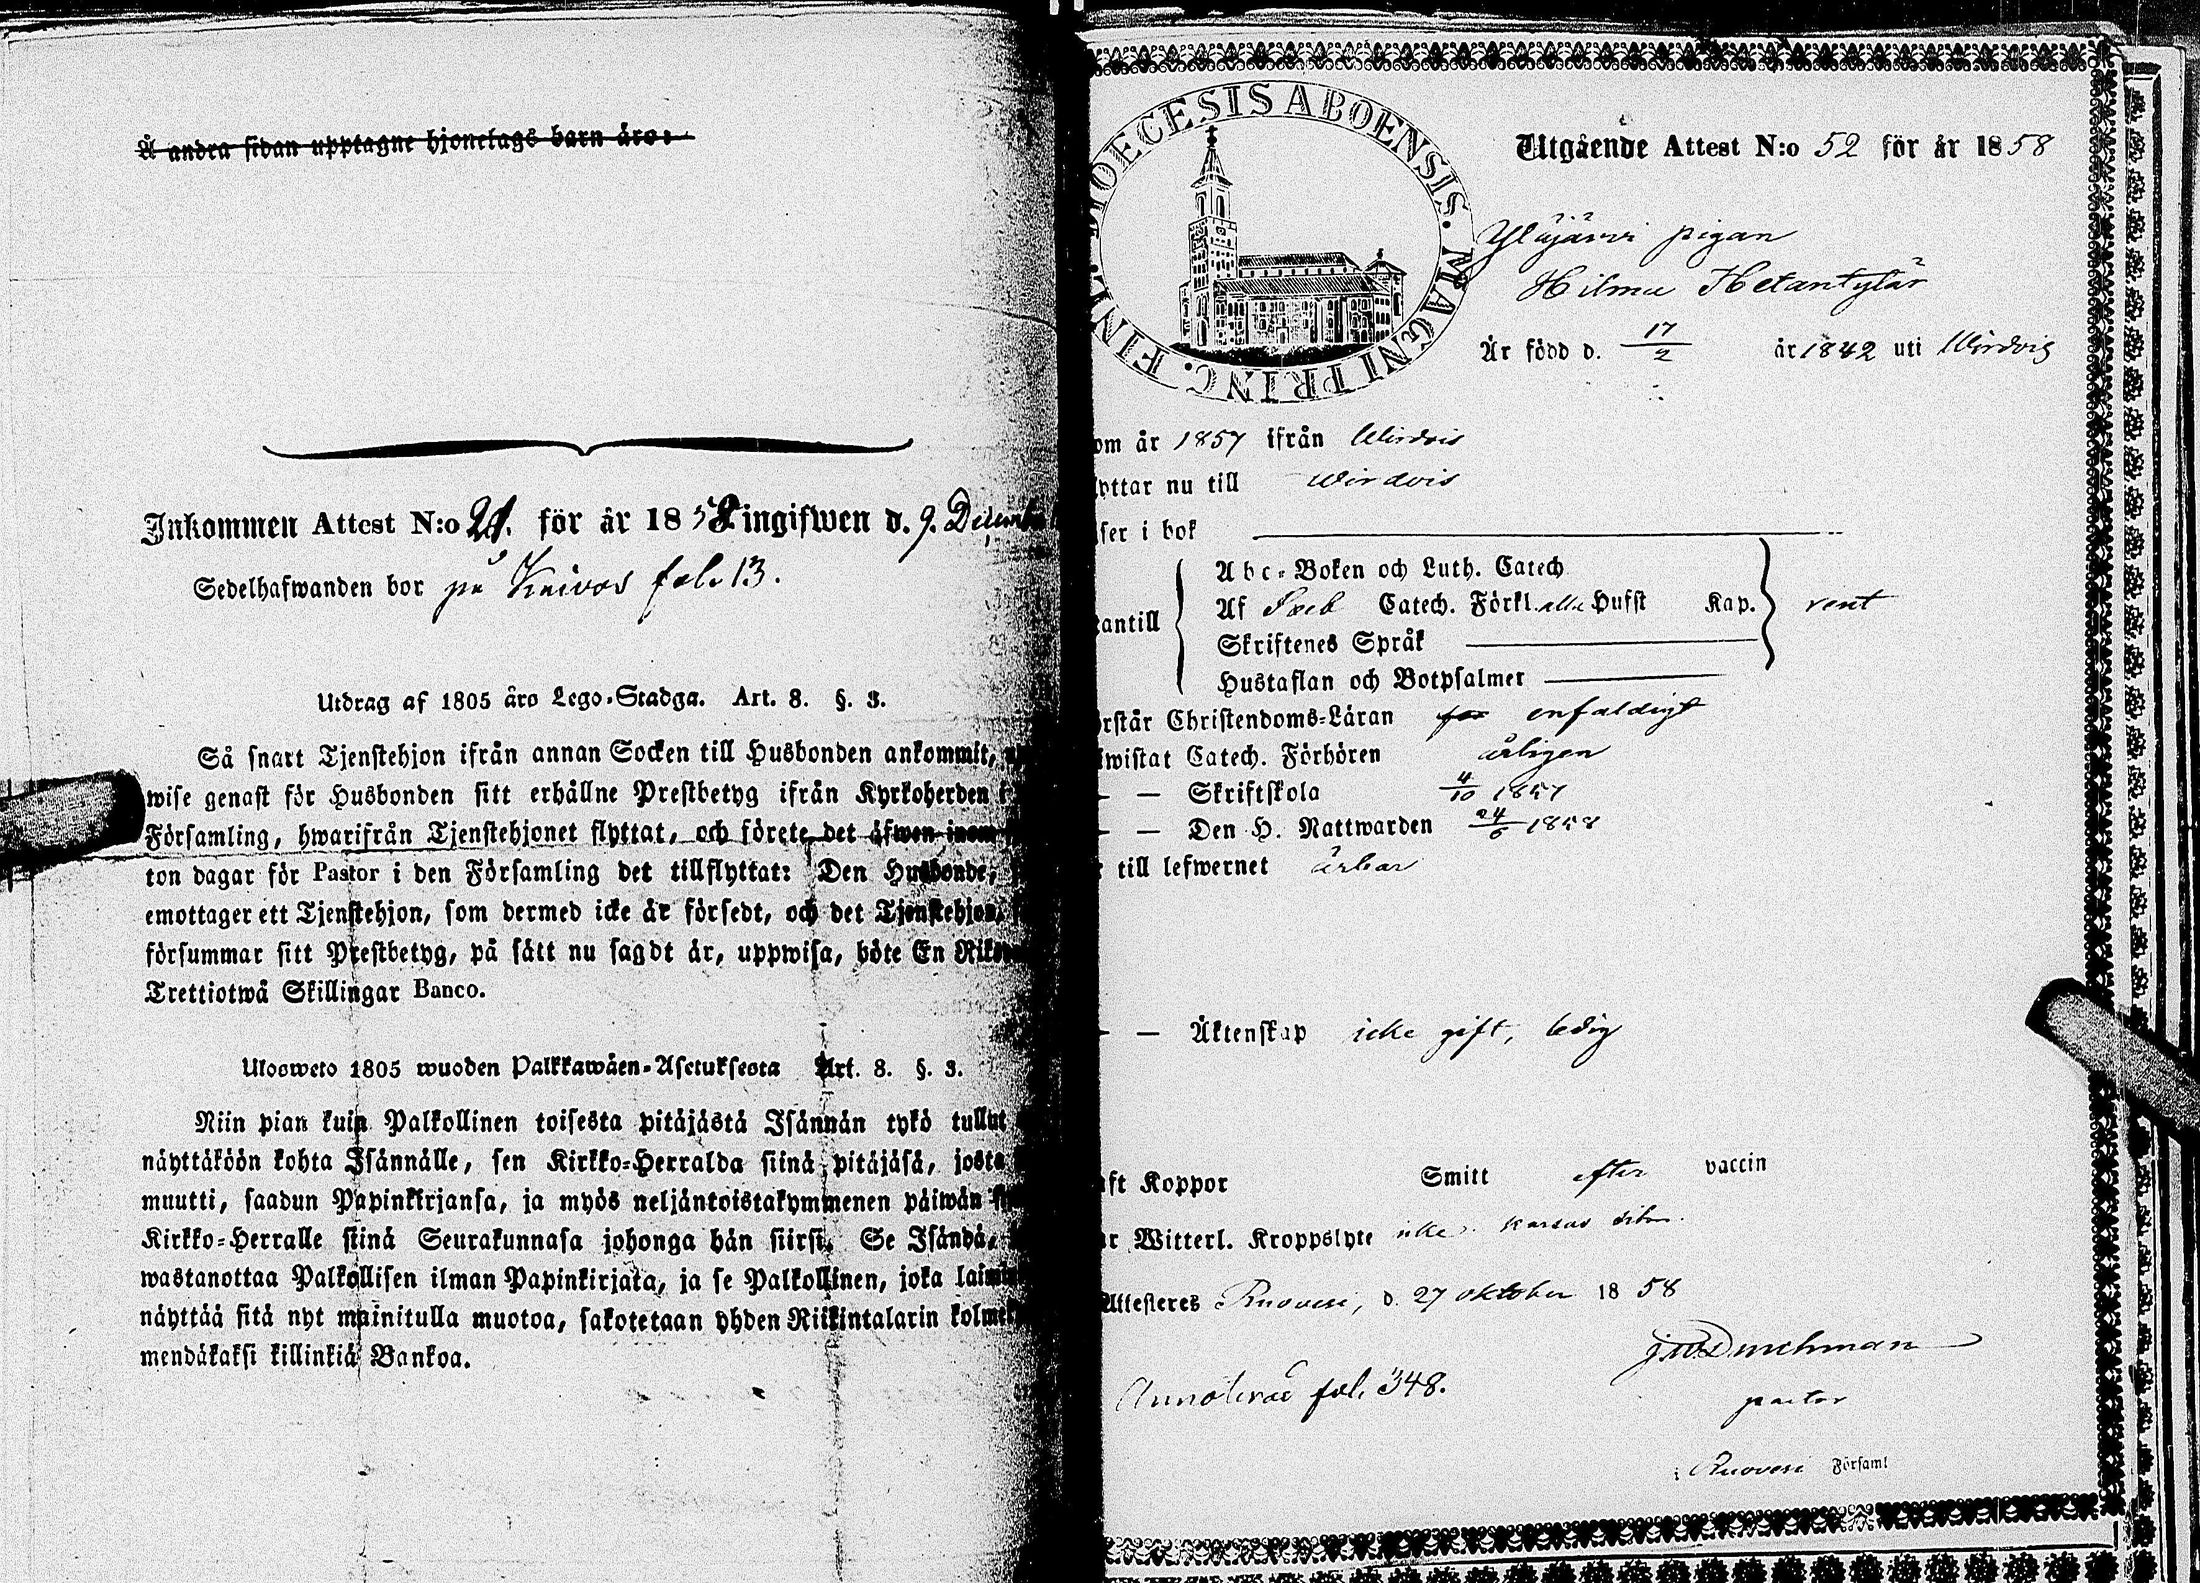 Å andra sidan upptagne hjonelags barn äro:
Inkommen Attest N:o 21. för år 1858 ingifwen d. 9. December
Sedelhafwanden bor på Keivos fol. 13.
Utdrag af 1805 års Lego-Stadga. Art. 8. §. 3.
Så snart Tjenstehjon ifrån annan Socken till Husbonden ankommit,
wise genast för Husbonden sitt erhållne Prestbetyg ifrån Kyrkoherden i
Församling, hwarifrån Tjenstehjonet flyttat, och förete det äfwen inom
ton dagar för Pastor i den Församling det tillflyttat: Den Husbonde,
emottager ett Tjenstehjon, som dermed icke är försedt, och det Tjenstehjon,
försummar sitt Prestbetyg, på sätt nu sagdt är, uppwisa, böte En Riks
Trettiotwå Skillingar Banco.
Ulosweto 1805 wuoden Palkkawäen-Asetuksesta Art. 8. §. 3.
Niin pian kuin Palkollinen toisesta pitäjästä Isännän tykö tullut
näyttäköön kohta Isännälle, sen Kirkko-Herralda siinä pitäjäsä, josta
muutti, saadun Papinkirjansa, ja myös neljäntoistakymmenen päiwän
Kirkko-Herralle siinä Seurakunnasa johonga hän siirsi. Se Isändä,
wastanottaa Palkollisen ilman Papinkirjata, ja se Palkollinen, joka laimin
näyttää sitä nyt mainitulla muotoa, sakotetaan yhden Riikintalarin kolme
mendäkaksi killinkiä Bankoa.
DIOECESIS ABOENSIS. MAGNI PRINC. FINL.
Utgående Attest N:o 52 för år 1858
Yläjärvi pigan
Hilma Hetantytär
Är född d. 17/2 år 1842 uti Wirdois
om år 1857 ifrån Wirdois
lyttar nu till Wirdois
äser i bok
Abc-Boken och Luth. Catech
Af Sveb Catech. Förkl. alla Hufst Kap. rent
tantill
Skriftenes Språk
Hustaflan och Botpsalmer
örstår Christendoms-Läran enfaldigt
iwistat Catech. Förhören årligen
— — Skriftskola 4/10 1857
— — Den H. Nattwarden 24/6 1858
r till lefwernet ärbar
— — Äktenskap icke gift, ledig
aft Koppor Smitt efter vaccin
ar Witterl. Kroppslyte icke
Attesteres Ruovesi, d. 27 oktober 1858
pastor
Annoterad fol. 348.
i Ruovesi Församl